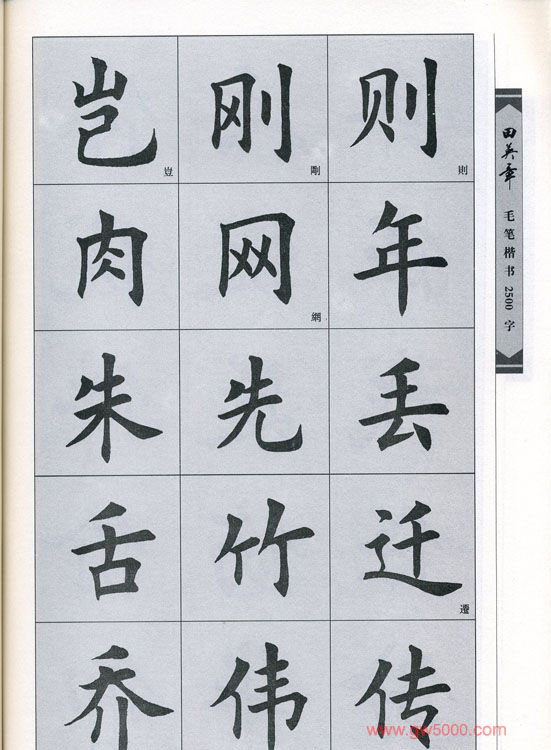 岂 刚 则
豈 剛 則
肉 网 年
網
朱 先 丢
舌 竹 迁
遷
乔 伟 传
田英章
毛笔楷书2500字
www.gw5000.com